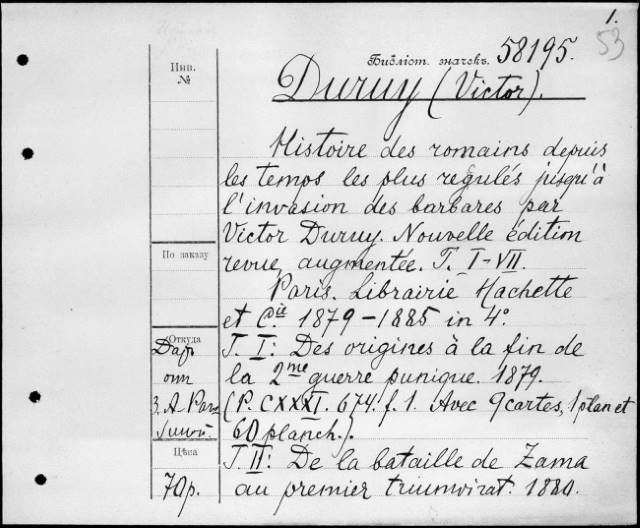 1.
53
Библіот. значекъ. 58195.
Duruy (Victor).
Инв.
№
Histoire des romains depuis
les temps les plus regulés jusqu'à
l'invasion des barbares par
Victor Duruy. Nouvelle édition
revue, augmentée. T. I-VII.
По заказу
Paris. Librairie Hachette
et Cie. 1879-1885 in 4°.
Откуда
Дар
T. I: Des origines à la fin de
la 2me guerre punique. 1879.
З. А.
(P. CXXXI. 674. f. 1. Avec 9 cartes, 1 plan et
60 planch.).
Цѣна
70р.
T. II: De la bataille de Zama
au premier triumvirat. 1880.